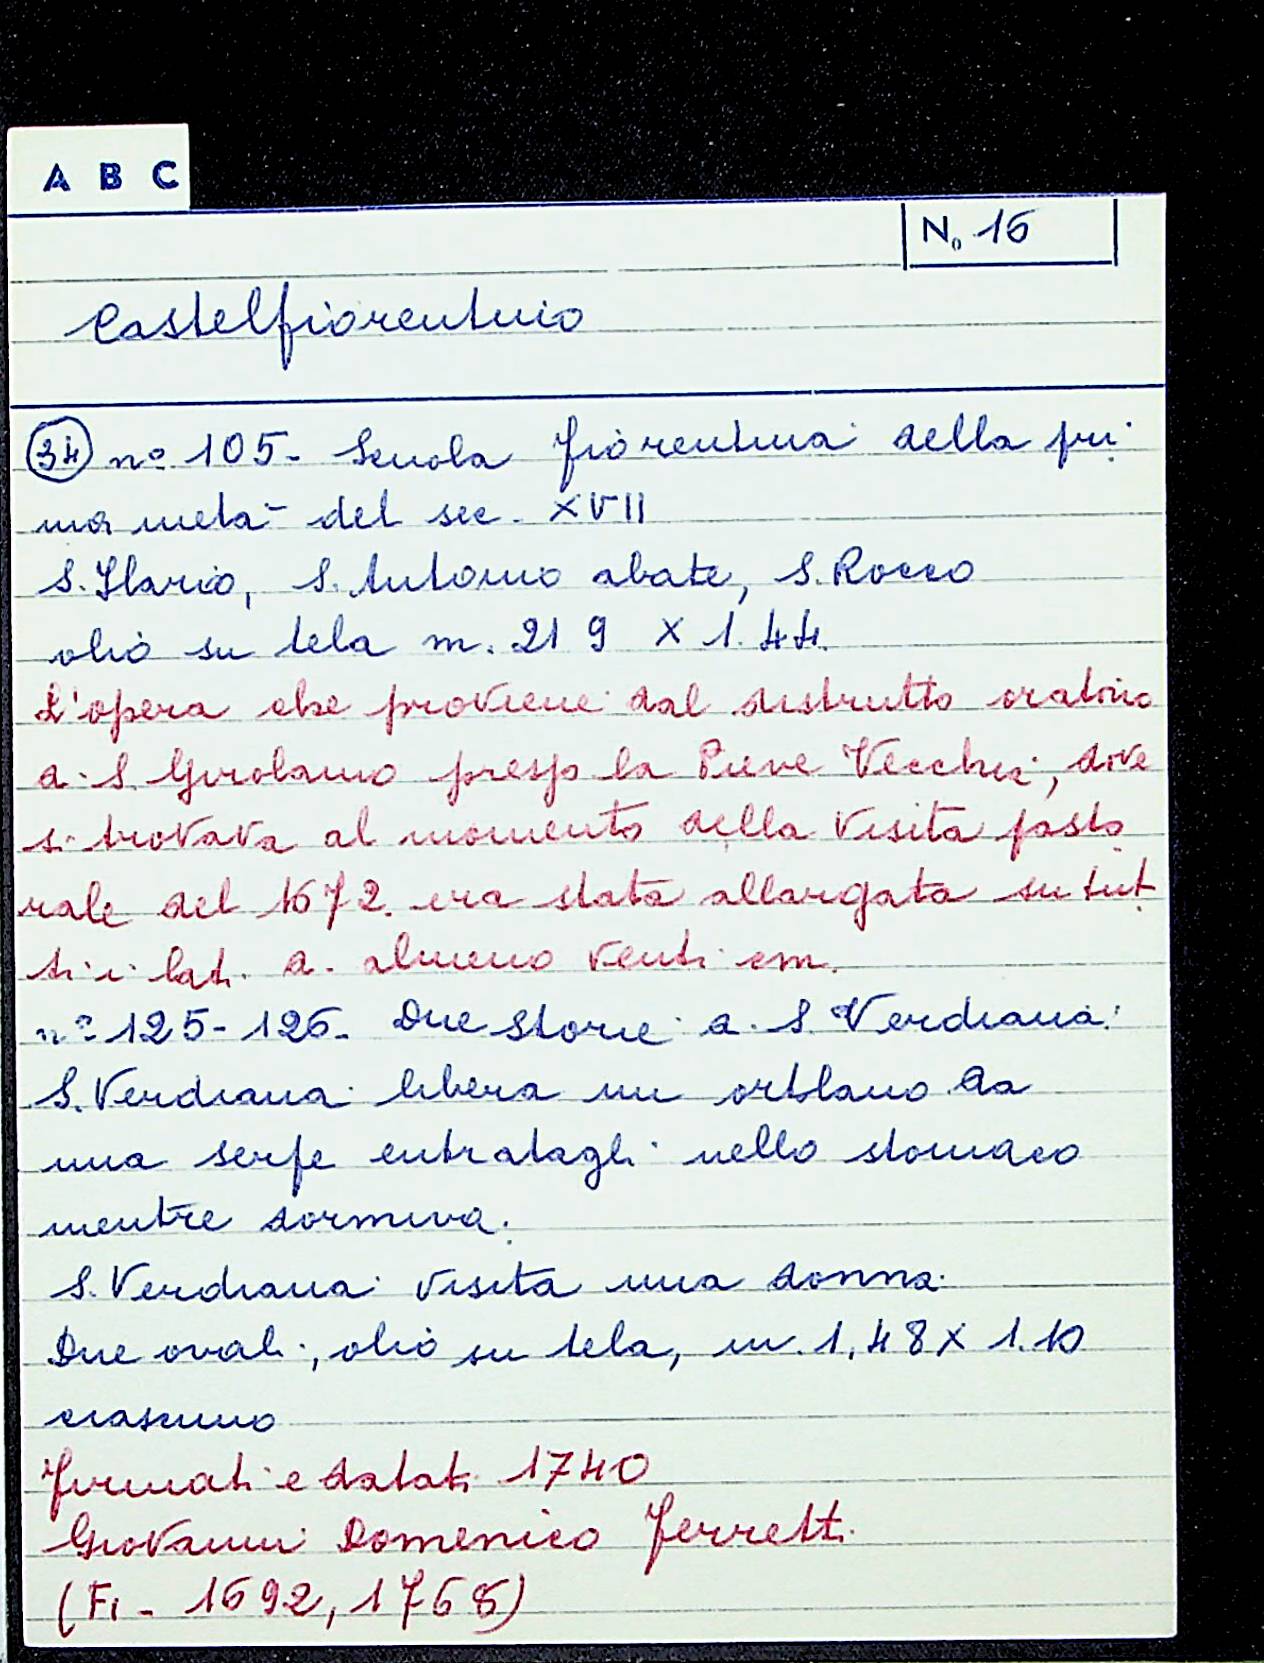 A B C
N. 16
Castelfiorentino
34 nº 105 - Scuola fiorentina della pri
ma metà del sec. XVII
S. Ilario, S. Antonio abate, S. Rocco
olio su tela m. 219 x 1.44.
L'opera che proviene dal distrutto oratorio
di S. Girolamo presso la Pieve Vecchia, dove
si trovava al momento della visita pasto
rale del 1672. era stata allargata su tut
ti i lati di almeno venti cm.
nº 125-126. Due storie di S. Verdiana:
S. Verdiana libera un ortolano da
una serpe entratagli nello stomaco
mentre dormiva.
S. Verdiana visita una donna
Due ovali, olio su tela, m. 1,48 x 1.10
ciascuno
firmati e datati 1740
Giovanni Domenico Ferretti
(Fi - 1692, 1768)